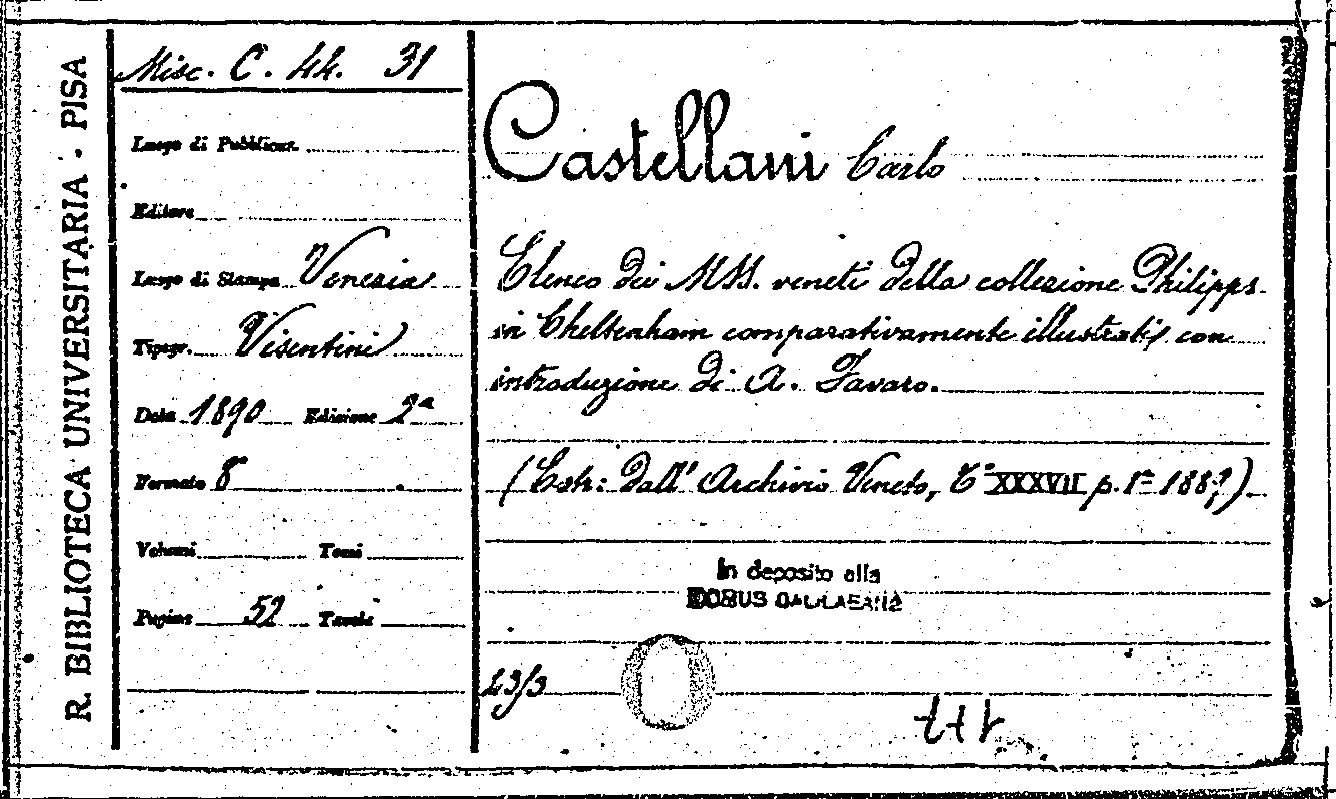 R. BIBLIOTECA UNIVERSITARIA - PISA
Misc. C. 44. 31
Luogo di Pubblicaz.
Editore
Luogo di Stampa Venezia
Tipogr. Visentini
Data 1890 Edizione 2ª
Formato 8°
Volumi Tomi
Pagine 52 Tavole
Castellani Carlo
Elenco dei MSS. veneti della collezione Philipps
in Cheltenham comparativamente illustrati con
introduzione di A. Favaro.
(Estr: dall' Archivio Veneto, T° XXXVII p. 1ª 1889)
In deposito alla
DOMUS GALILAEANA
23/3